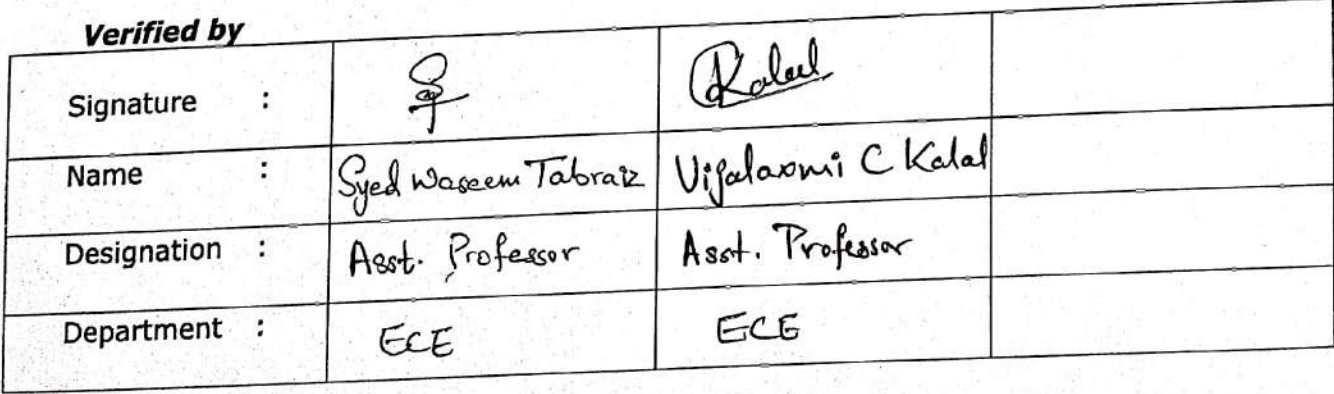 Verified by
Signature :
Name : Syed Waseem Tabraiz Vijalaxmi C Kalal
Designation : Asst. Professor Asst. Professor
Department : ECE ECE